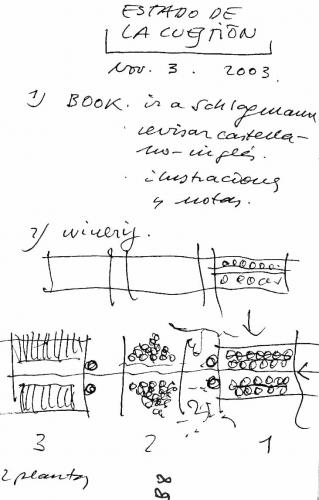 ESTADO DE
LA CUESTIÓN
NOV. 3. 2003.
1) BOOK. ir a Schlogmann
· revisar castella-
no-inglés.
· ilustraciones
y notas.
2) winery.
3 2 1
2 plantas